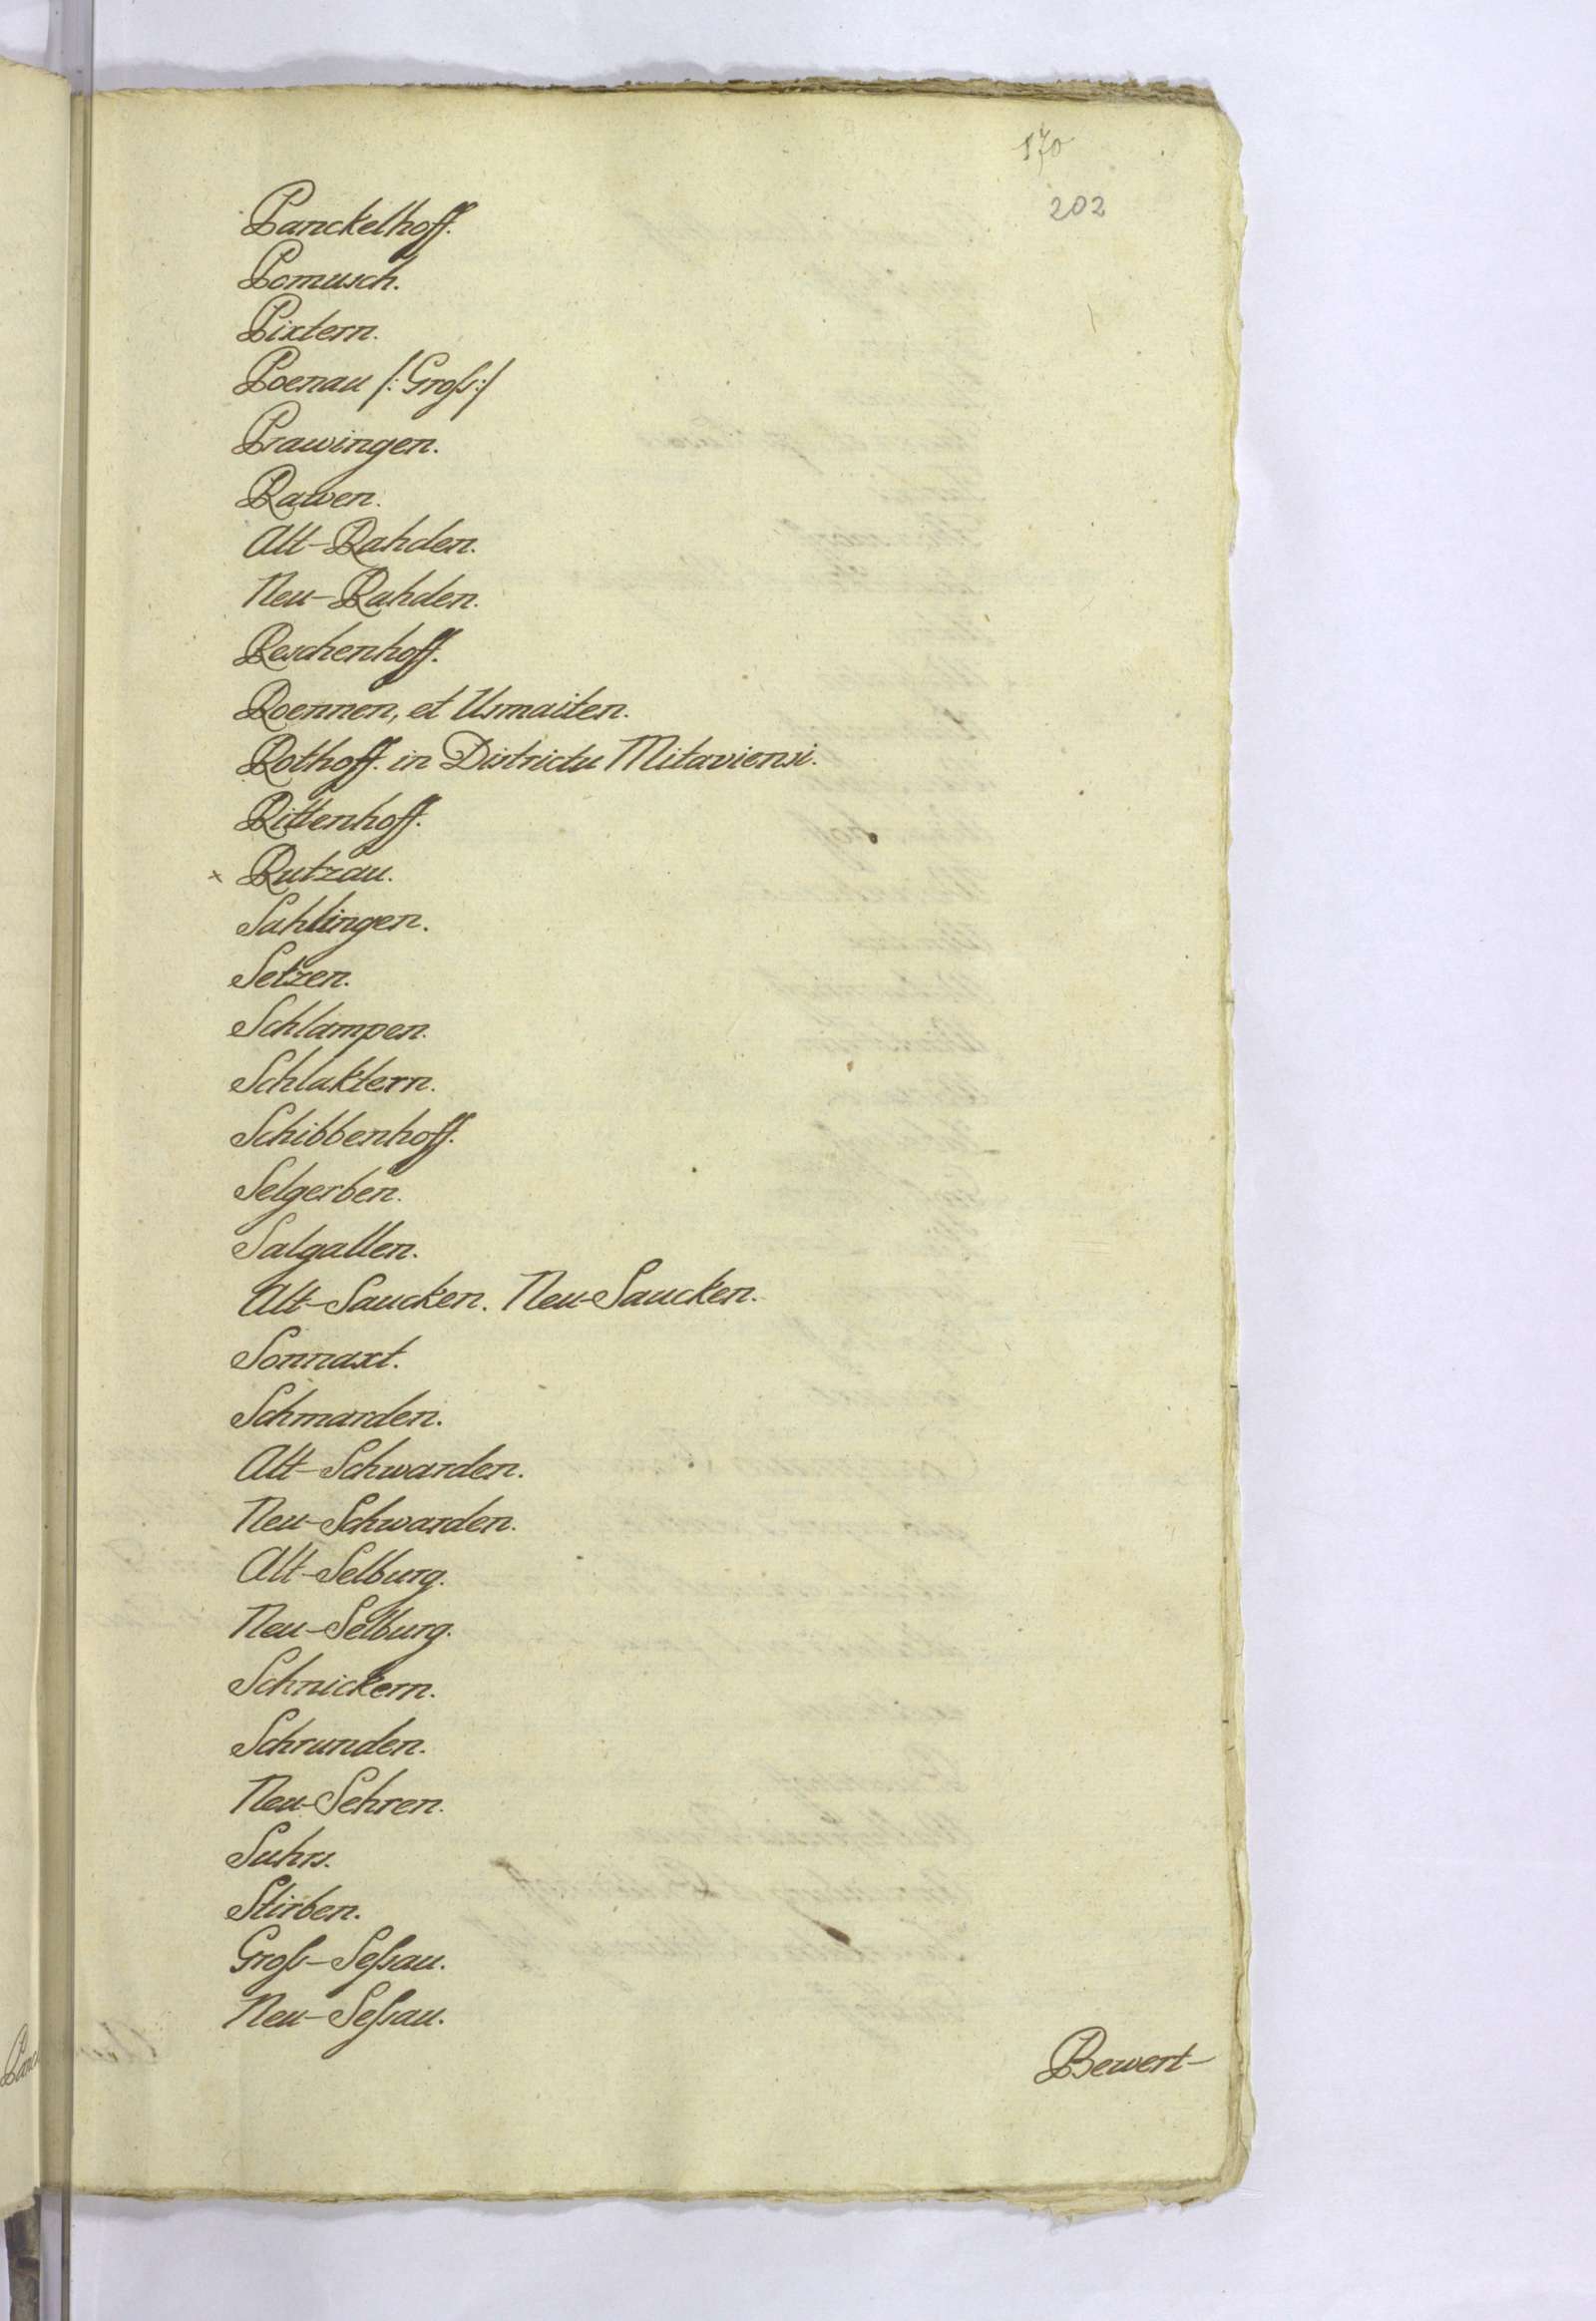 170
202
Panckelhoff.
Pomusch.
Pixtern.
Poenau /: Groß :/
Prawingen.
Rawen.
Alt-Rahden.
Neu-Rahden.
Reschenhoff.
Roennen, et Usmaiten.
Rothoff. in Districtu Mitaviensi.
Rittenhoff.
x Rutzau.
Sahlingen.
Setzen.
Schlampen.
Schlaktern.
Schibbenhoff.
Selgerben.
Salgallen.
Alt-Saucken. Neu-Saucken.
Sonnaxt.
Schmarden.
Alt-Schwarden.
Neu-Schwarden.
Alt-Selburg.
Neu-Selburg.
Schnickern.
Schrunden.
Neu-Sehren.
Suhrs.
Stirben.
Groß-Seßau.
Neu-Seßau.
Bewert-